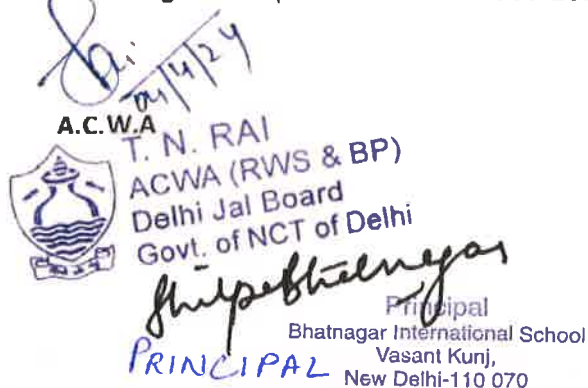 04/4/24
A.C.W.A
T. N. RAI
ACWA (RWS & BP)
Delhi Jal Board
Govt. of NCT of Delhi
Shilpa Bhatnagar
Principal
Bhatnagar International School
PRINCIPAL
Vasant Kunj,
New Delhi-110 070